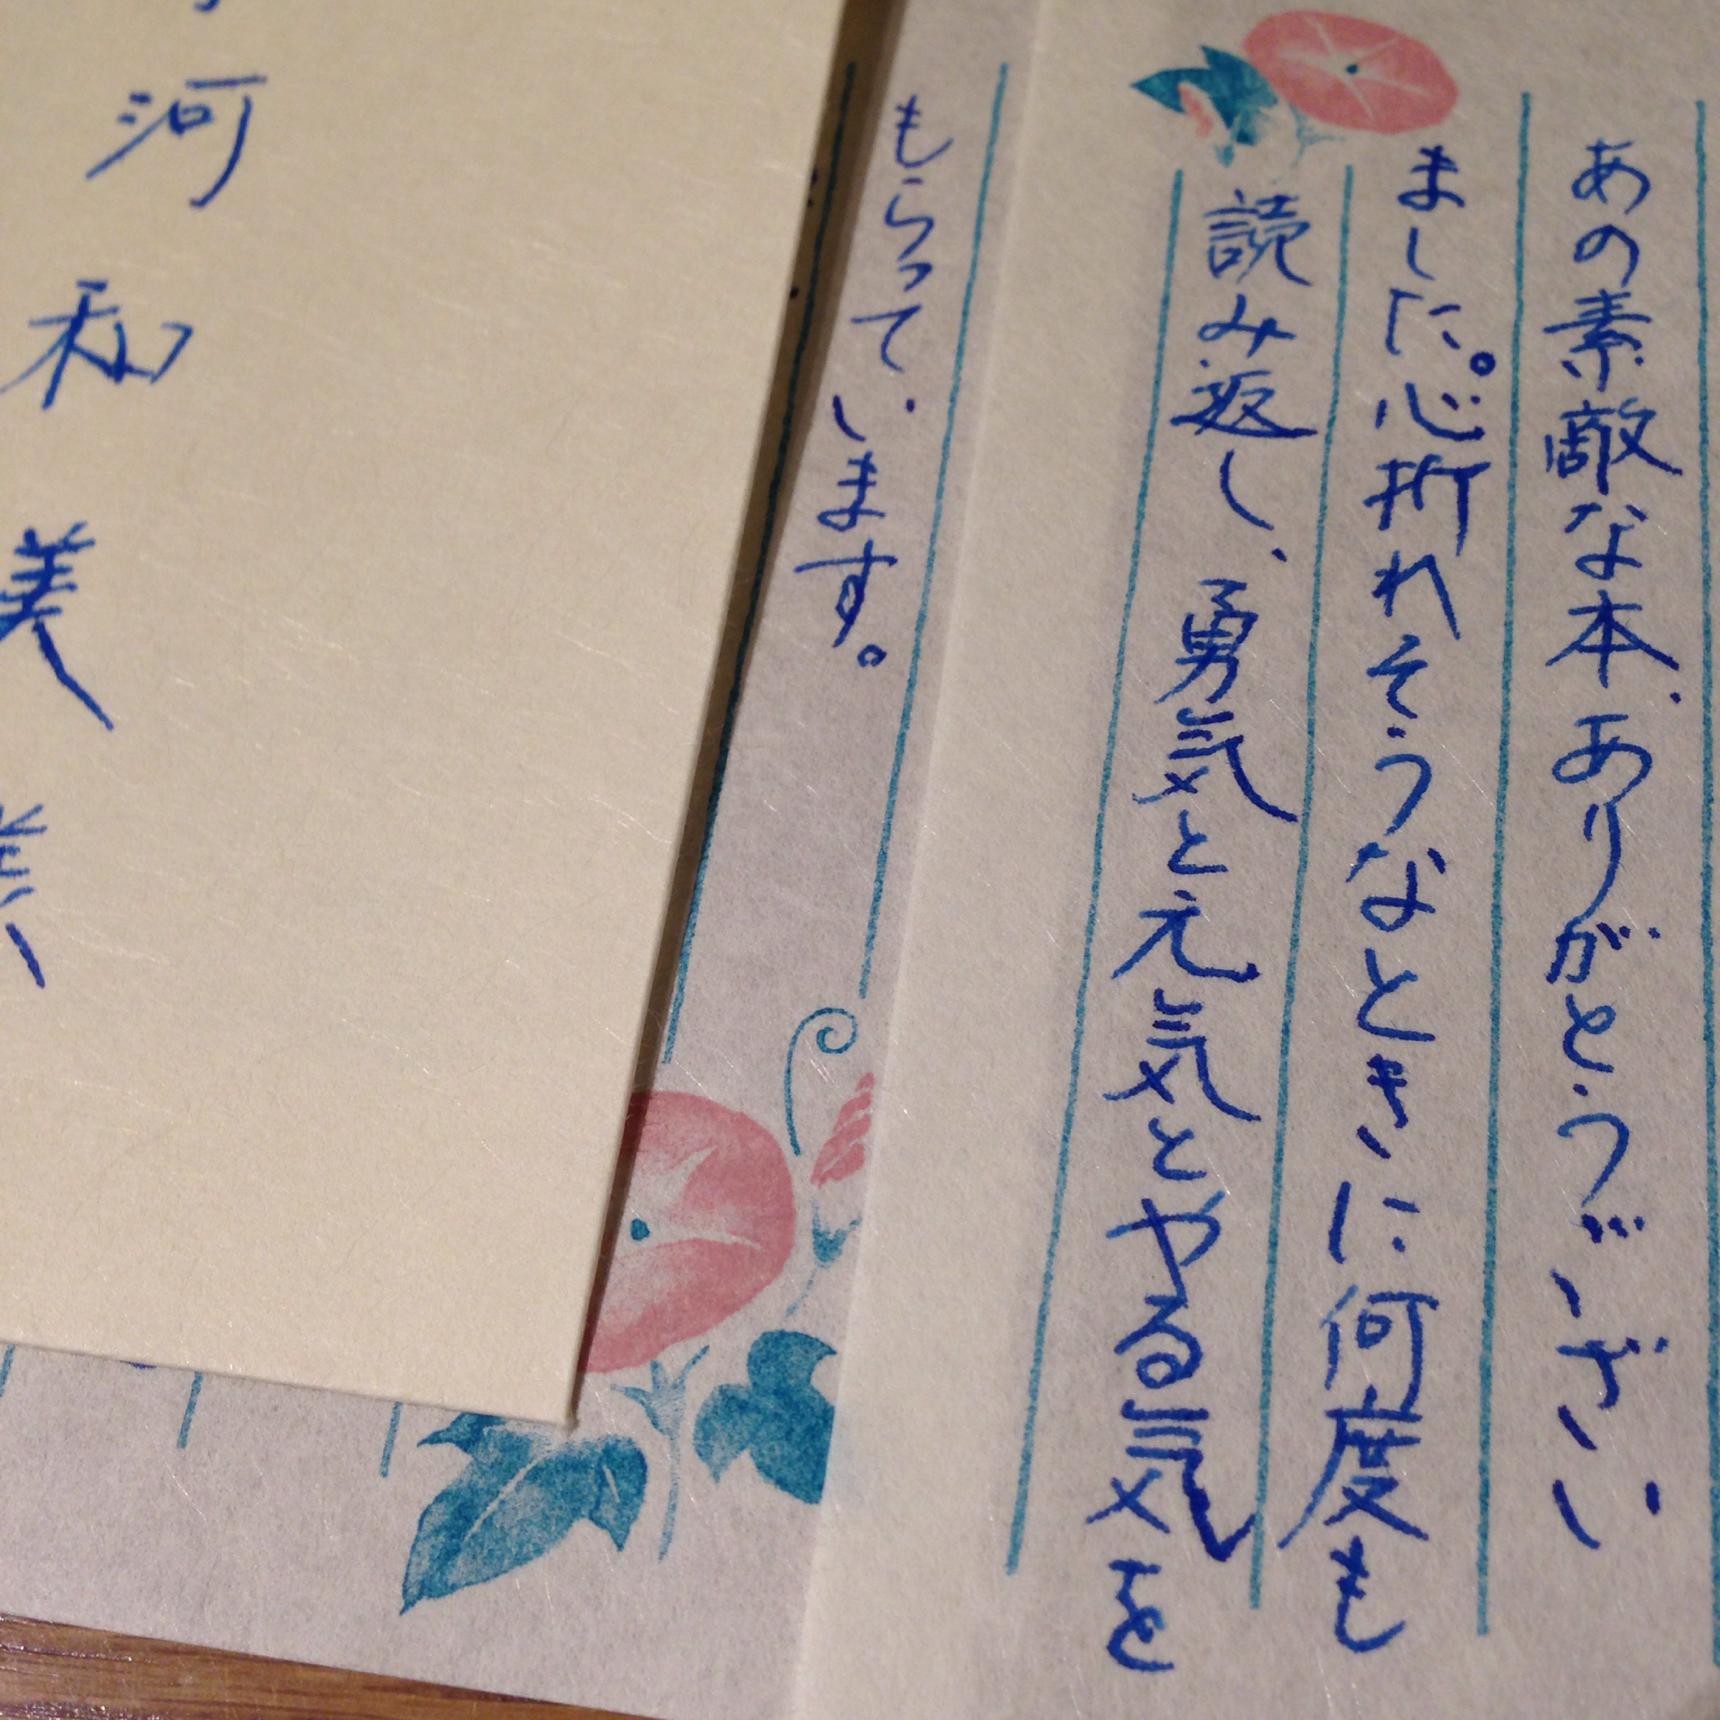 あの素敵な本、ありがとうございい
ました。心折れそうなときに何度も
読み返し、勇気と元気とやる気を
もらっています。
河和美